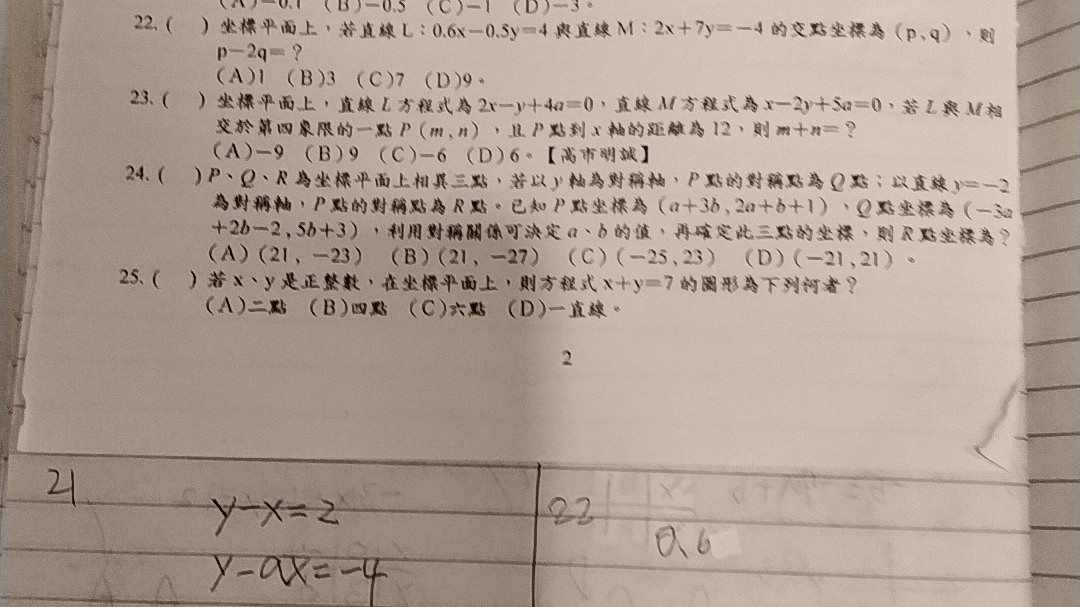 (A)−0.1 (B)−0.5 (C)−1 (D)−3。
22. ( ) 坐標平面上，若直線 L：0.6x−0.5y=4 與直線 M：2x+7y=−4 的交點坐標為（p、q）、則
p−2q=？
(A)1 (B)3 (C)7 (D)9。
23. ( ) 坐標平面上，直線 L 方程式為 2x−y+4a=0，直線 M 方程式為 x−2y+5a=0，若 L 與 M 相
交於第四象限的一點 P（m, n），且 P 點到 x 軸的距離為 12，則 m+n=？
(A)−9 (B) 9 (C)−6 (D) 6。【高市明誠】
24. ( ) P、Q、R 為坐標平面上相異三點，若以 y 軸為對稱軸，P 點的對稱點為 Q 點；以直線 y=−2
為對稱軸，P 點的對稱點為 R 點。已知 P 點坐標為（a+3b , 2a+b+1），Q 點坐標為（−3a
+2b−2 , 5b+3），利用對稱關係可決定 a、b 的值，再確定此三點的坐標，則 R 點坐標為？
(A)（21，−23） (B)（21，−27） (C)（−25 , 23） (D)（−21 , 21）。
25. ( ) 若 x、y 是正整數，在坐標平面上，則方程式 x+y=7 的圖形為下列何者？
(A)二點 (B)四點 (C)六點 (D)一直線。
2
21 22
y−x=2
0.6
y−ax=−4